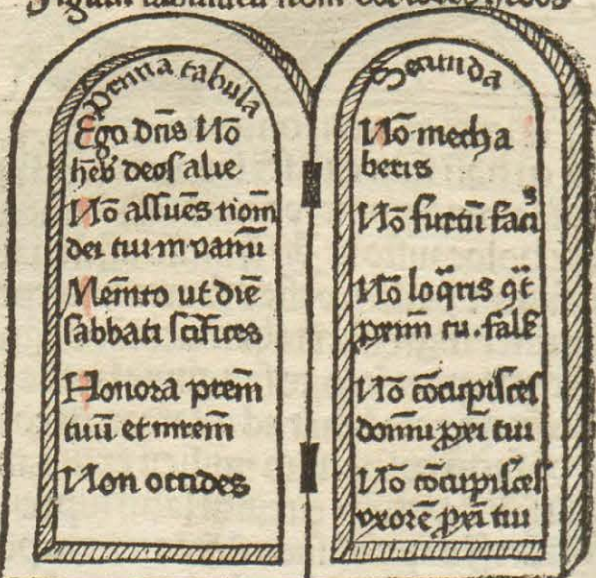 Prima tabula
Ego dn̄s Nō
hēb deos alie
Nō assūes nom̄
dei tuı m vanū
Mem̄to ut diē
sabbati sc̄ifices
Honora ptem̄
tuū et mrem̄
Non occides
Secunda
Nō mecha
beris
Nō furtū facis
Nō loq̄ris
prim̄ tu. fals̄
Nō cōcupisces
domū pxi tui
Nō cōcupisces
vxorē pxi tui